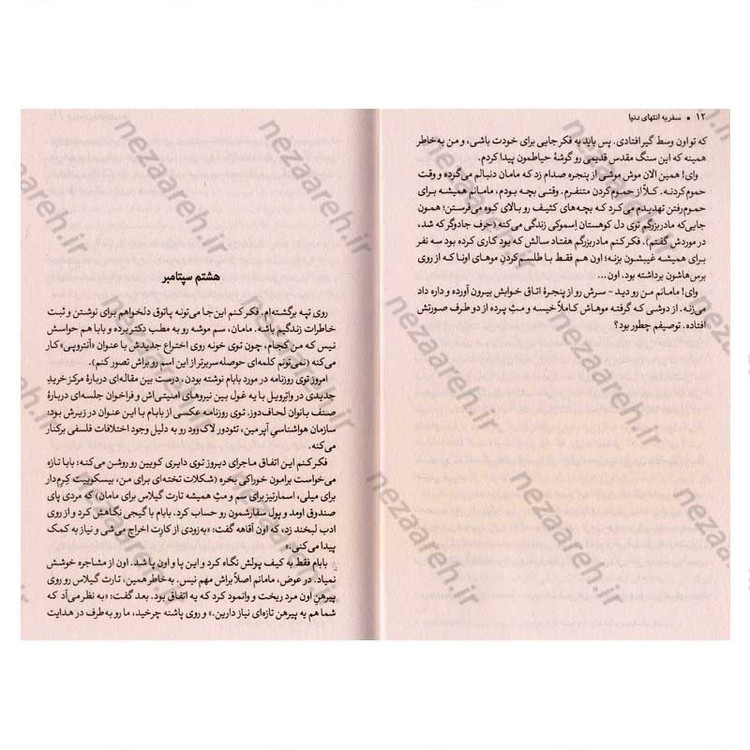 ۱۲ • سفر به انتهای دنیا
که تو اون وسط گیر افتادی. پس باید به فکر جایی برای خودت باشی، و من به خاطر
همینه که این سنگ مقدس قدیمی رو گوشهٔ حیاطمون پیدا کردم.
وای! همین الان موش موشی از پنجره صدام زد که مامان دنبالم می‌گرده و وقت
حموم‌کردنه. کلاً از حموم‌کردن متنفرم. وقتی بچه بودم، مامانم همیشه برای
حموم‌رفتن تهدیدم می‌کرد که بچه‌های کثیف رو بالای کوه می‌فرستن؛ همون
جایی‌که مادربزرگم توی دل کوهستان اِسموکی زندگی می‌کنه (حرف جادوگر که شد،
در موردش گفتم). فکر کنم مادربزرگم هفتاد سالش که بود کاری کرده بود سه نفر
برای همیشه غیبشون بزنه؛ اون هم فقط با طلسم‌کردنِ موهای اونا که از روی
برس‌هاشون برداشته بود. اون...
وای! مامانم من رو دید – سرش رو از پنجرهٔ اتاق خوابش بیرون آورده و داره داد
می‌زنه. از دوشی که گرفته موهاش کاملاً خیسه و مثِ پرده از دو طرف صورتش
افتاده. توصیفم چطور بود؟
هشتم سپتامبر
روی تپه برگشته‌ام. فکر کنم این‌جا می‌تونه پاتوق دلخواهم برای نوشتن و ثبت
خاطرات زندگیم باشه. مامان، سم موشه رو به مطب دکتر برده و بابا هم حواسش
نیس که من کجام، چون توی خونه روی اختراع جدیدش با عنوان «آنتروپی» کار
می‌کنه (نمی‌تونم کلمه‌ای حوصله‌سربرتر از این اسم رو براش تصور کنم).
امروز توی روزنامه در مورد بابام نوشته بودن، درست بین مقاله‌ای دربارهٔ مرکز خریدِ
جدیدی در واترویل با یه غول بین نیروهای امنیتی‌اش و فراخوان جلسه‌ای دربارهٔ
صنف بانوان لحاف‌دوز. توی روزنامه عکسی از بابام با این عنوان در زیرش بود:
سازمان هواشناسیِ آپر مین، تئودور لاک‌وود رو به دلیل وجود اختلافات فلسفی برکنار
می‌کنه.
فکر کنم این اتفاق ماجرای دیروز توی دایری کویین رو روشن می‌کنه؛ بابا تازه
می‌خواست برامون خوراکی بخره (شکلات تخته‌ای برای من، بیسکوییت کِرم‌دار
برای میلی، اسمارتیز برای سم و مثِ همیشه تارت گیلاس برای مامان) که مردی پای
صندوق اومد و پول سفارشمون رو حساب کرد. بابام با گیجی نگاهش کرد و از روی
ادب لبخند زد، که اون آقاهه گفت: «به‌زودی از کارِت اخراج می‌شی و نیاز به کمک
پیدا می‌کنی.»
بابام فقط به کیف پولش نگاه کرد و این پا و اون پا شد. اون از مشاجره خوشش
نمیاد. در عوض، مامانم اصلاً براش مهم نیس. به‌خاطر همین، تارت گیلاس رو روی
پیرهنِ اون مرد ریخت و وانمود کرد که یه اتفاق بود. بعد گفت: «به نظر می‌آد که
شما هم به پیرهن تازه‌ای نیاز دارین.» و روی پاشنه چرخید، ما رو به‌طرف در هدایت
nezaareh.ir
nezaareh.ir
nezaareh.ir
nezaareh.ir
nezaareh.ir
nezaareh.ir
nezaareh.ir
nezaareh.ir